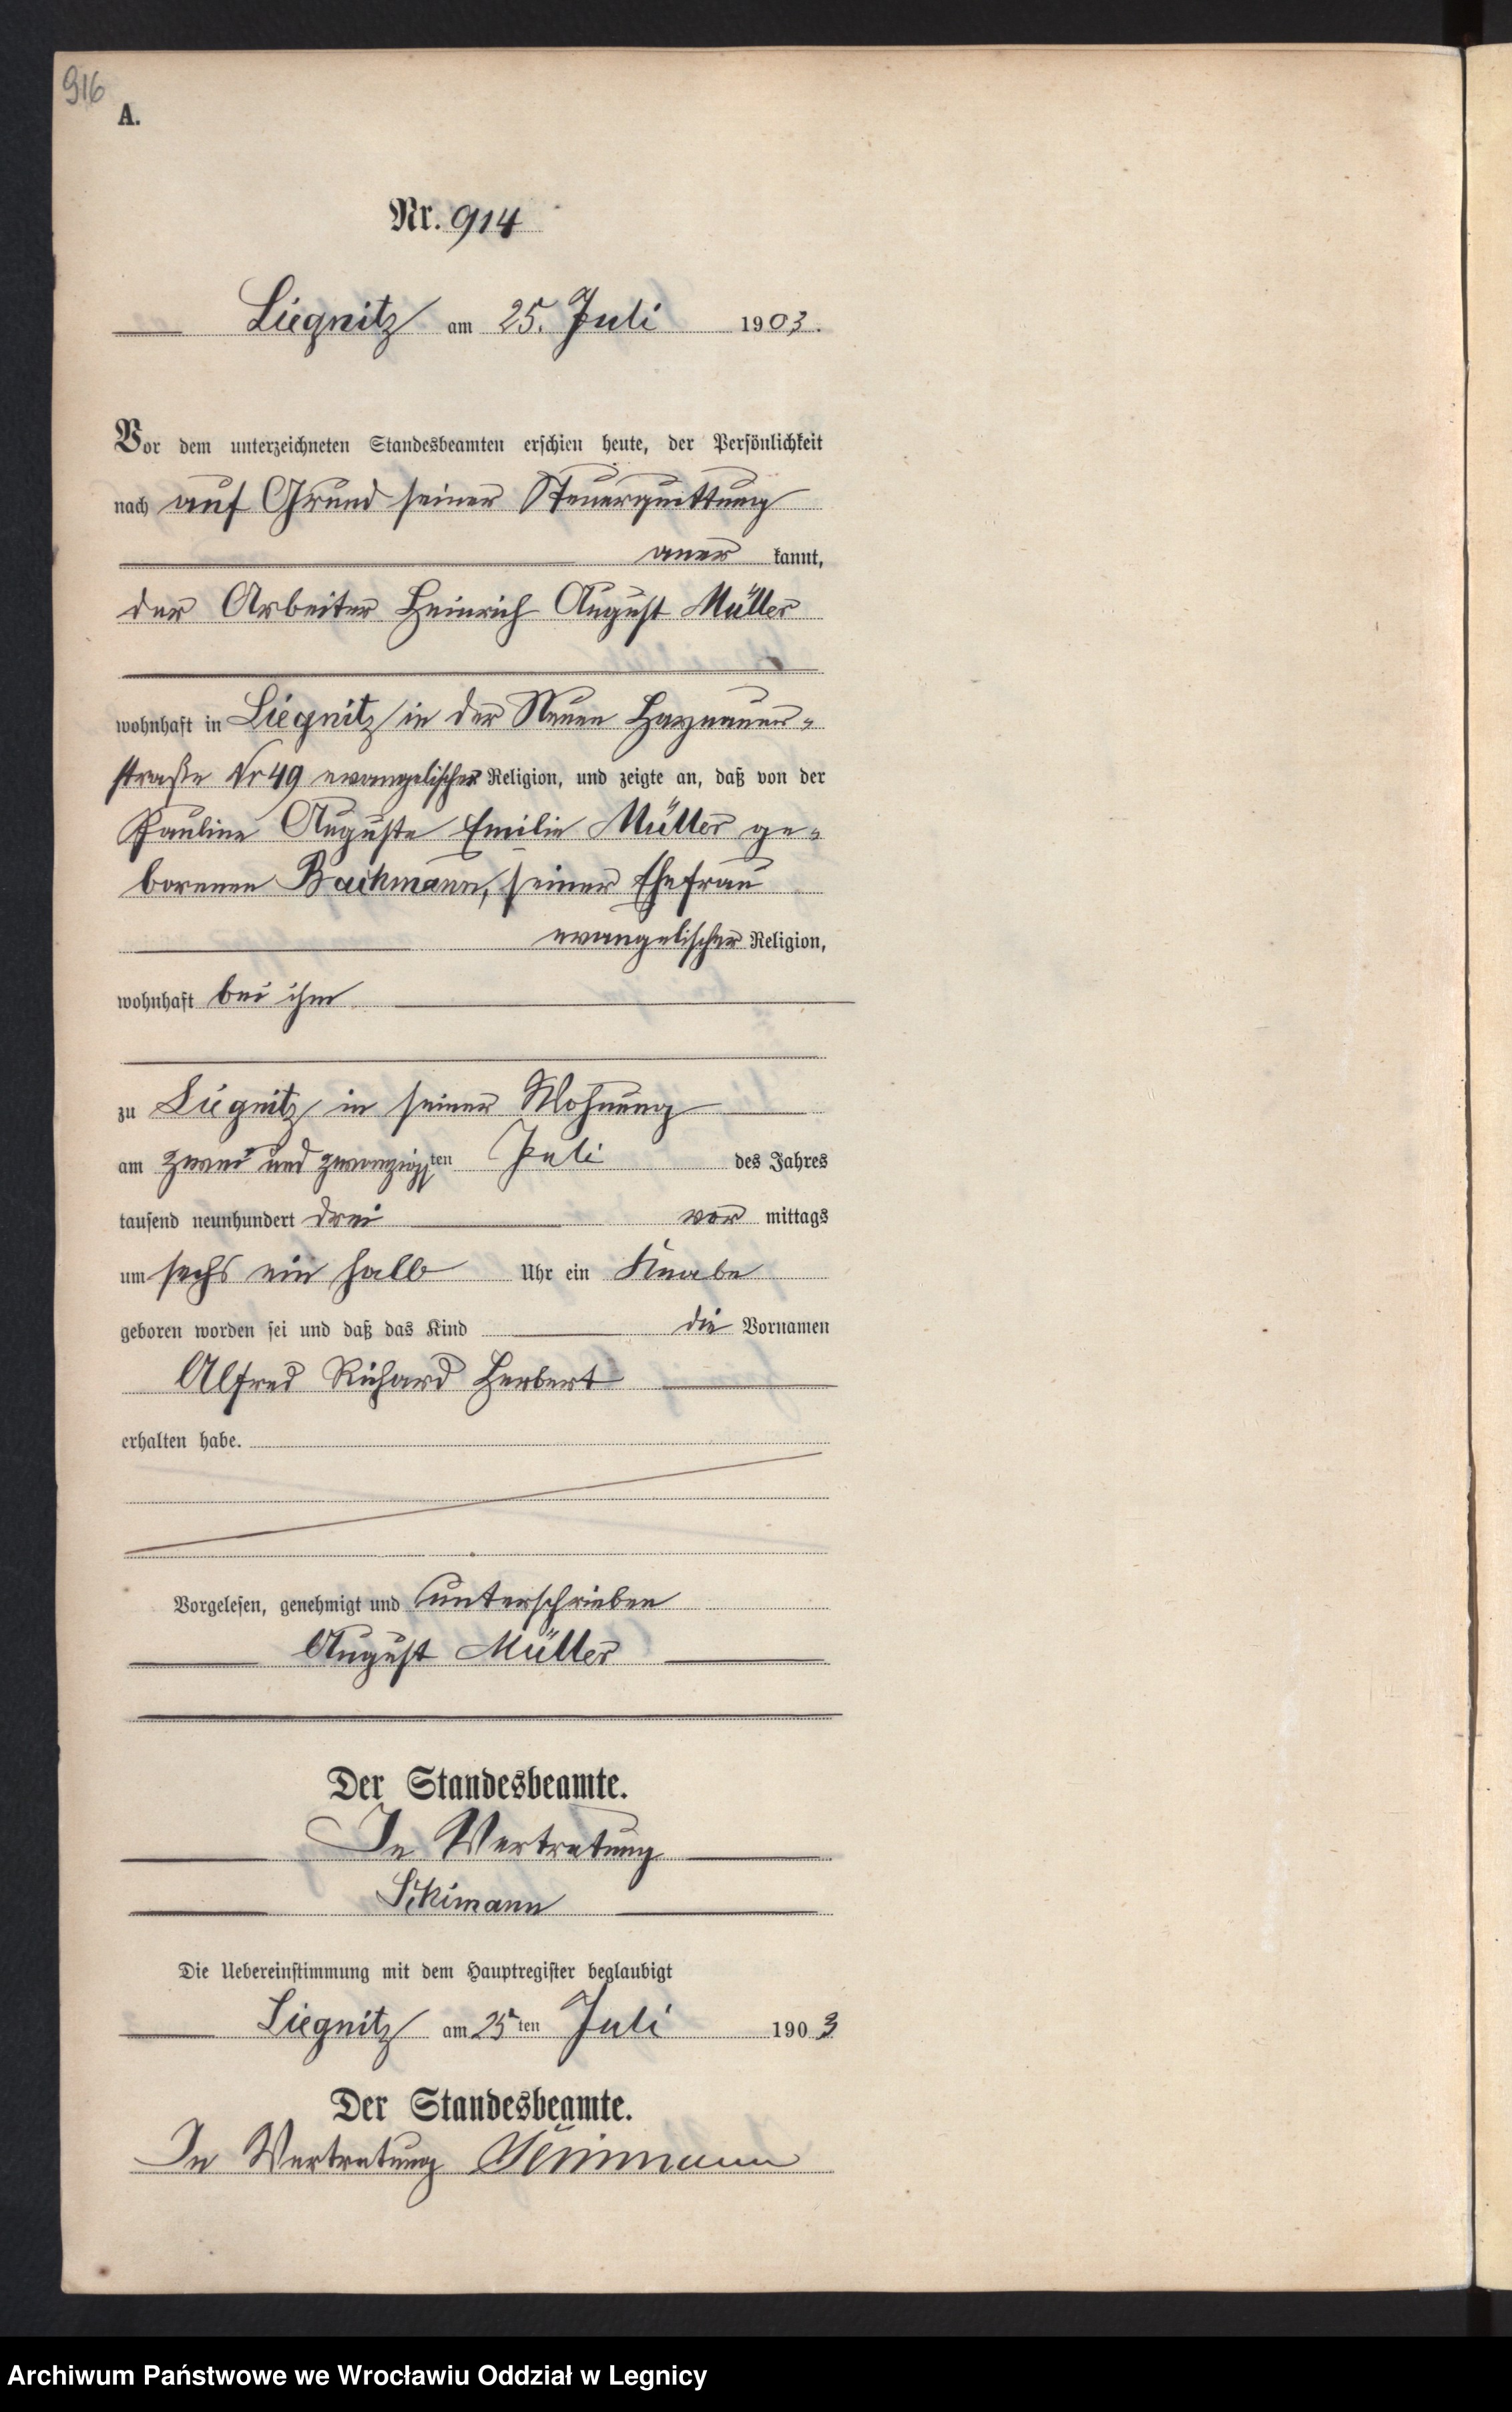 916
A.
Nr. 914
Liegnitz am 25. Juli 1903.
Vor dem unterzeichneten Standesbeamten erschien heute, der Persönlichkeit
nach auf Grund seiner Steuerquittung
aner kannt,
der Arbeiter Heinrich August Müller
wohnhaft in Liegnitz in der Neuen Haynauer-
straße Nr 49 evangelischer Religion, und zeigte an, daß von der
Pauline Auguste Emilie Müller ge-
borenen seiner Ehefrau
evangelischer Religion,
wohnhaft bei ihm
zu Liegnitz in seiner Wohnung
am zwei und zwanzigsten Juli des Jahres
tausend neunhundert drei vor mittags
um sechs ein halb Uhr ein Knabe
geboren worden sei und daß das Kind die Vornamen
Alfred Richard Herbert
erhalten habe.
Vorgelesen, genehmigt und unterschrieben
August Müller
Der Standesbeamte.
In Vertretung
Die Uebereinstimmung mit dem Hauptregister beglaubigt
Liegnitz am 25ten Juli 1903
Der Standesbeamte.
In Vertretung
Archiwum Państwowe we Wrocławiu Oddział w Legnicy